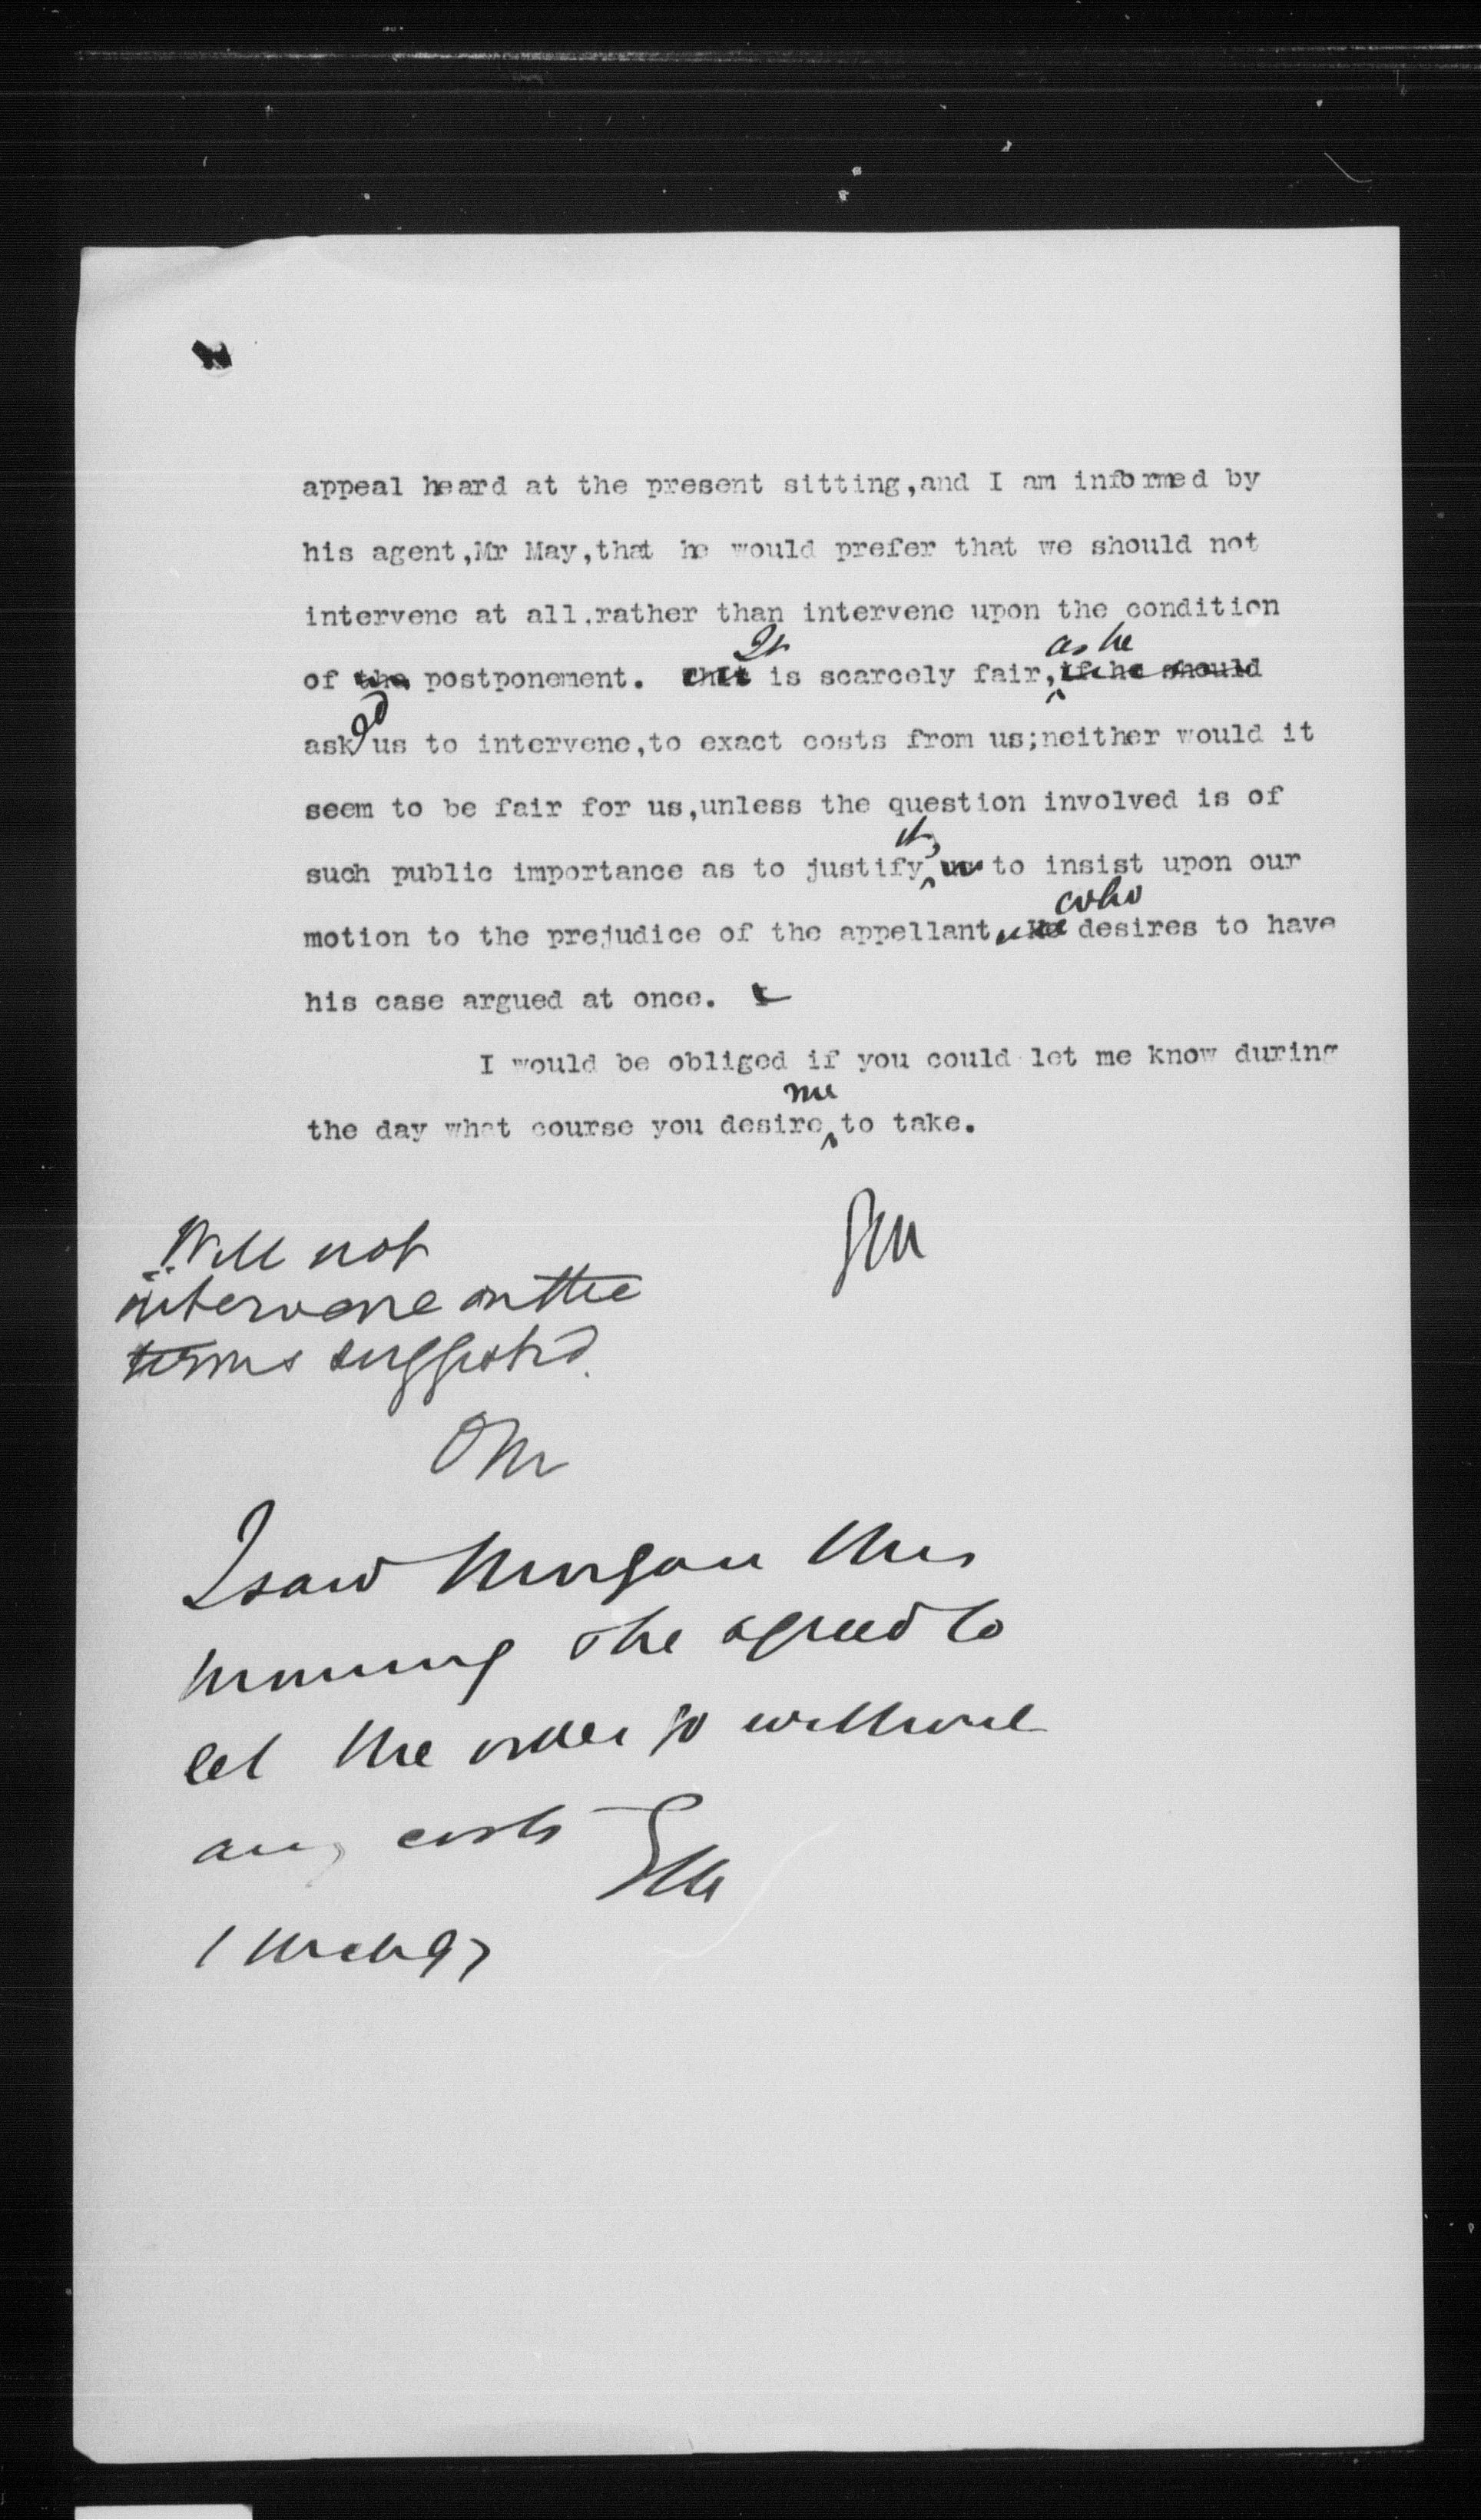 appeal heard at the present sitting,and I am informed by
his agent,Mr May,that he would prefer that we should not
intervene at all,rather than intervene upon the condition
of the postponement. It is scarcely fair, as he if he should
asked us to intervene,to exact costs from us;neither would it
seem to be fair for us,unless the question involved is of
such public importance as to justify it, to insist upon our
motion to the prejudice of the appellant who desires to have
his case argued at once.
I would be obliged if you could let me know during
the day what course you desire me to take.
Will not
intervene on the
terms suggested.
OM
I saw Morgan this
morning & he agreed to
let the order go without
any costs
1 March 97